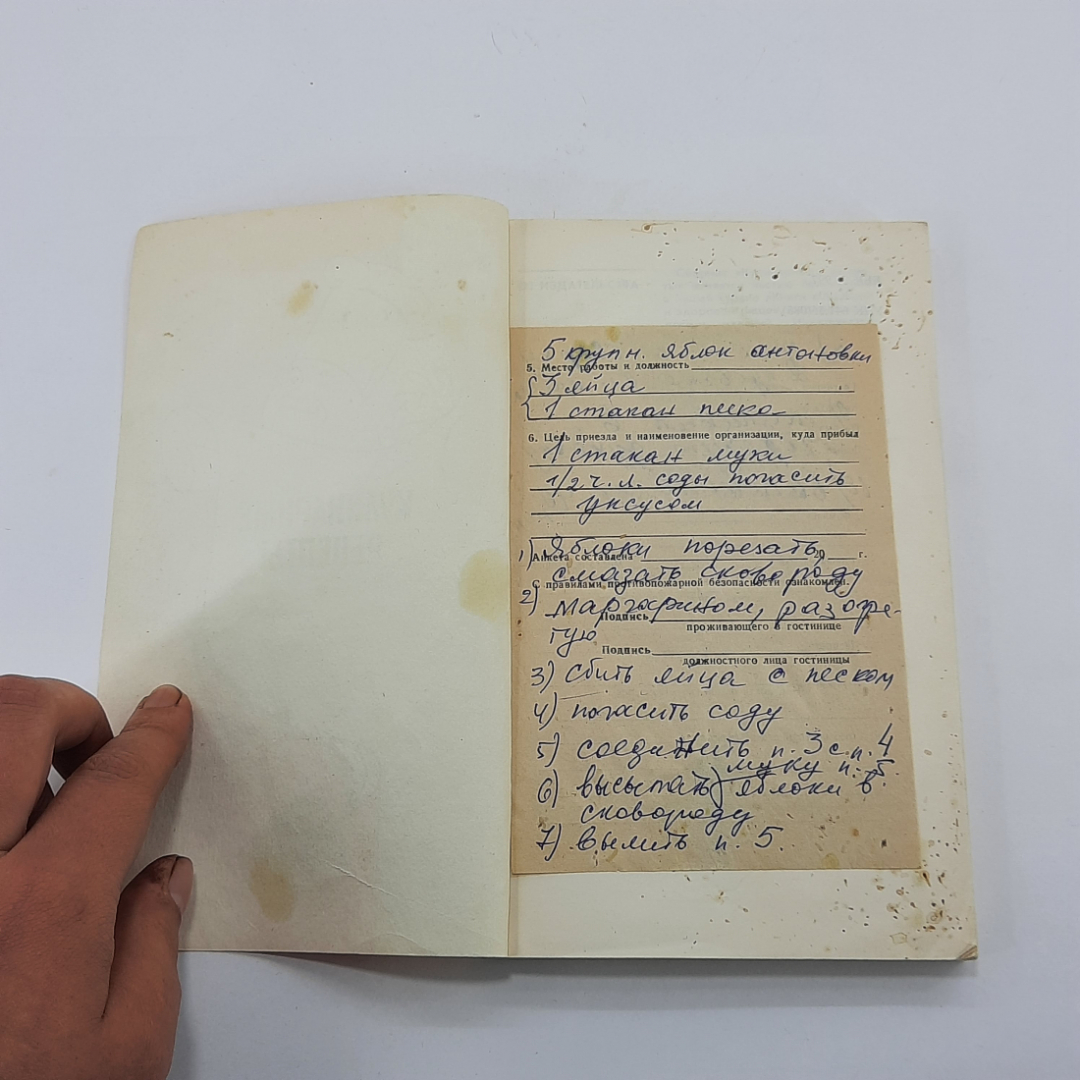 5 крупн. яблок антоновки
5. Место работы и должность
3 яйца
1 стакан песка
6. Цель приезда и наименование организации, куда прибыл
1 стакан муки
1/2 ч. л. соды погасить
уксусом
1) Яблоки порезать
Анкета составлена 20 г.
смазать сковороду
С правилами противопожарной безопасности ознакомлен.
2) маргарином, разогре-
Подпись
проживающего в гостинице
тую
Подпись
должностного лица гостиницы
3) сбить яйца с песком
4) погасить соду
5) соединить п. 3 с п. 4
муку п. 5.
6) высыпать яблоки в
сковороду
7) вылить п. 5.